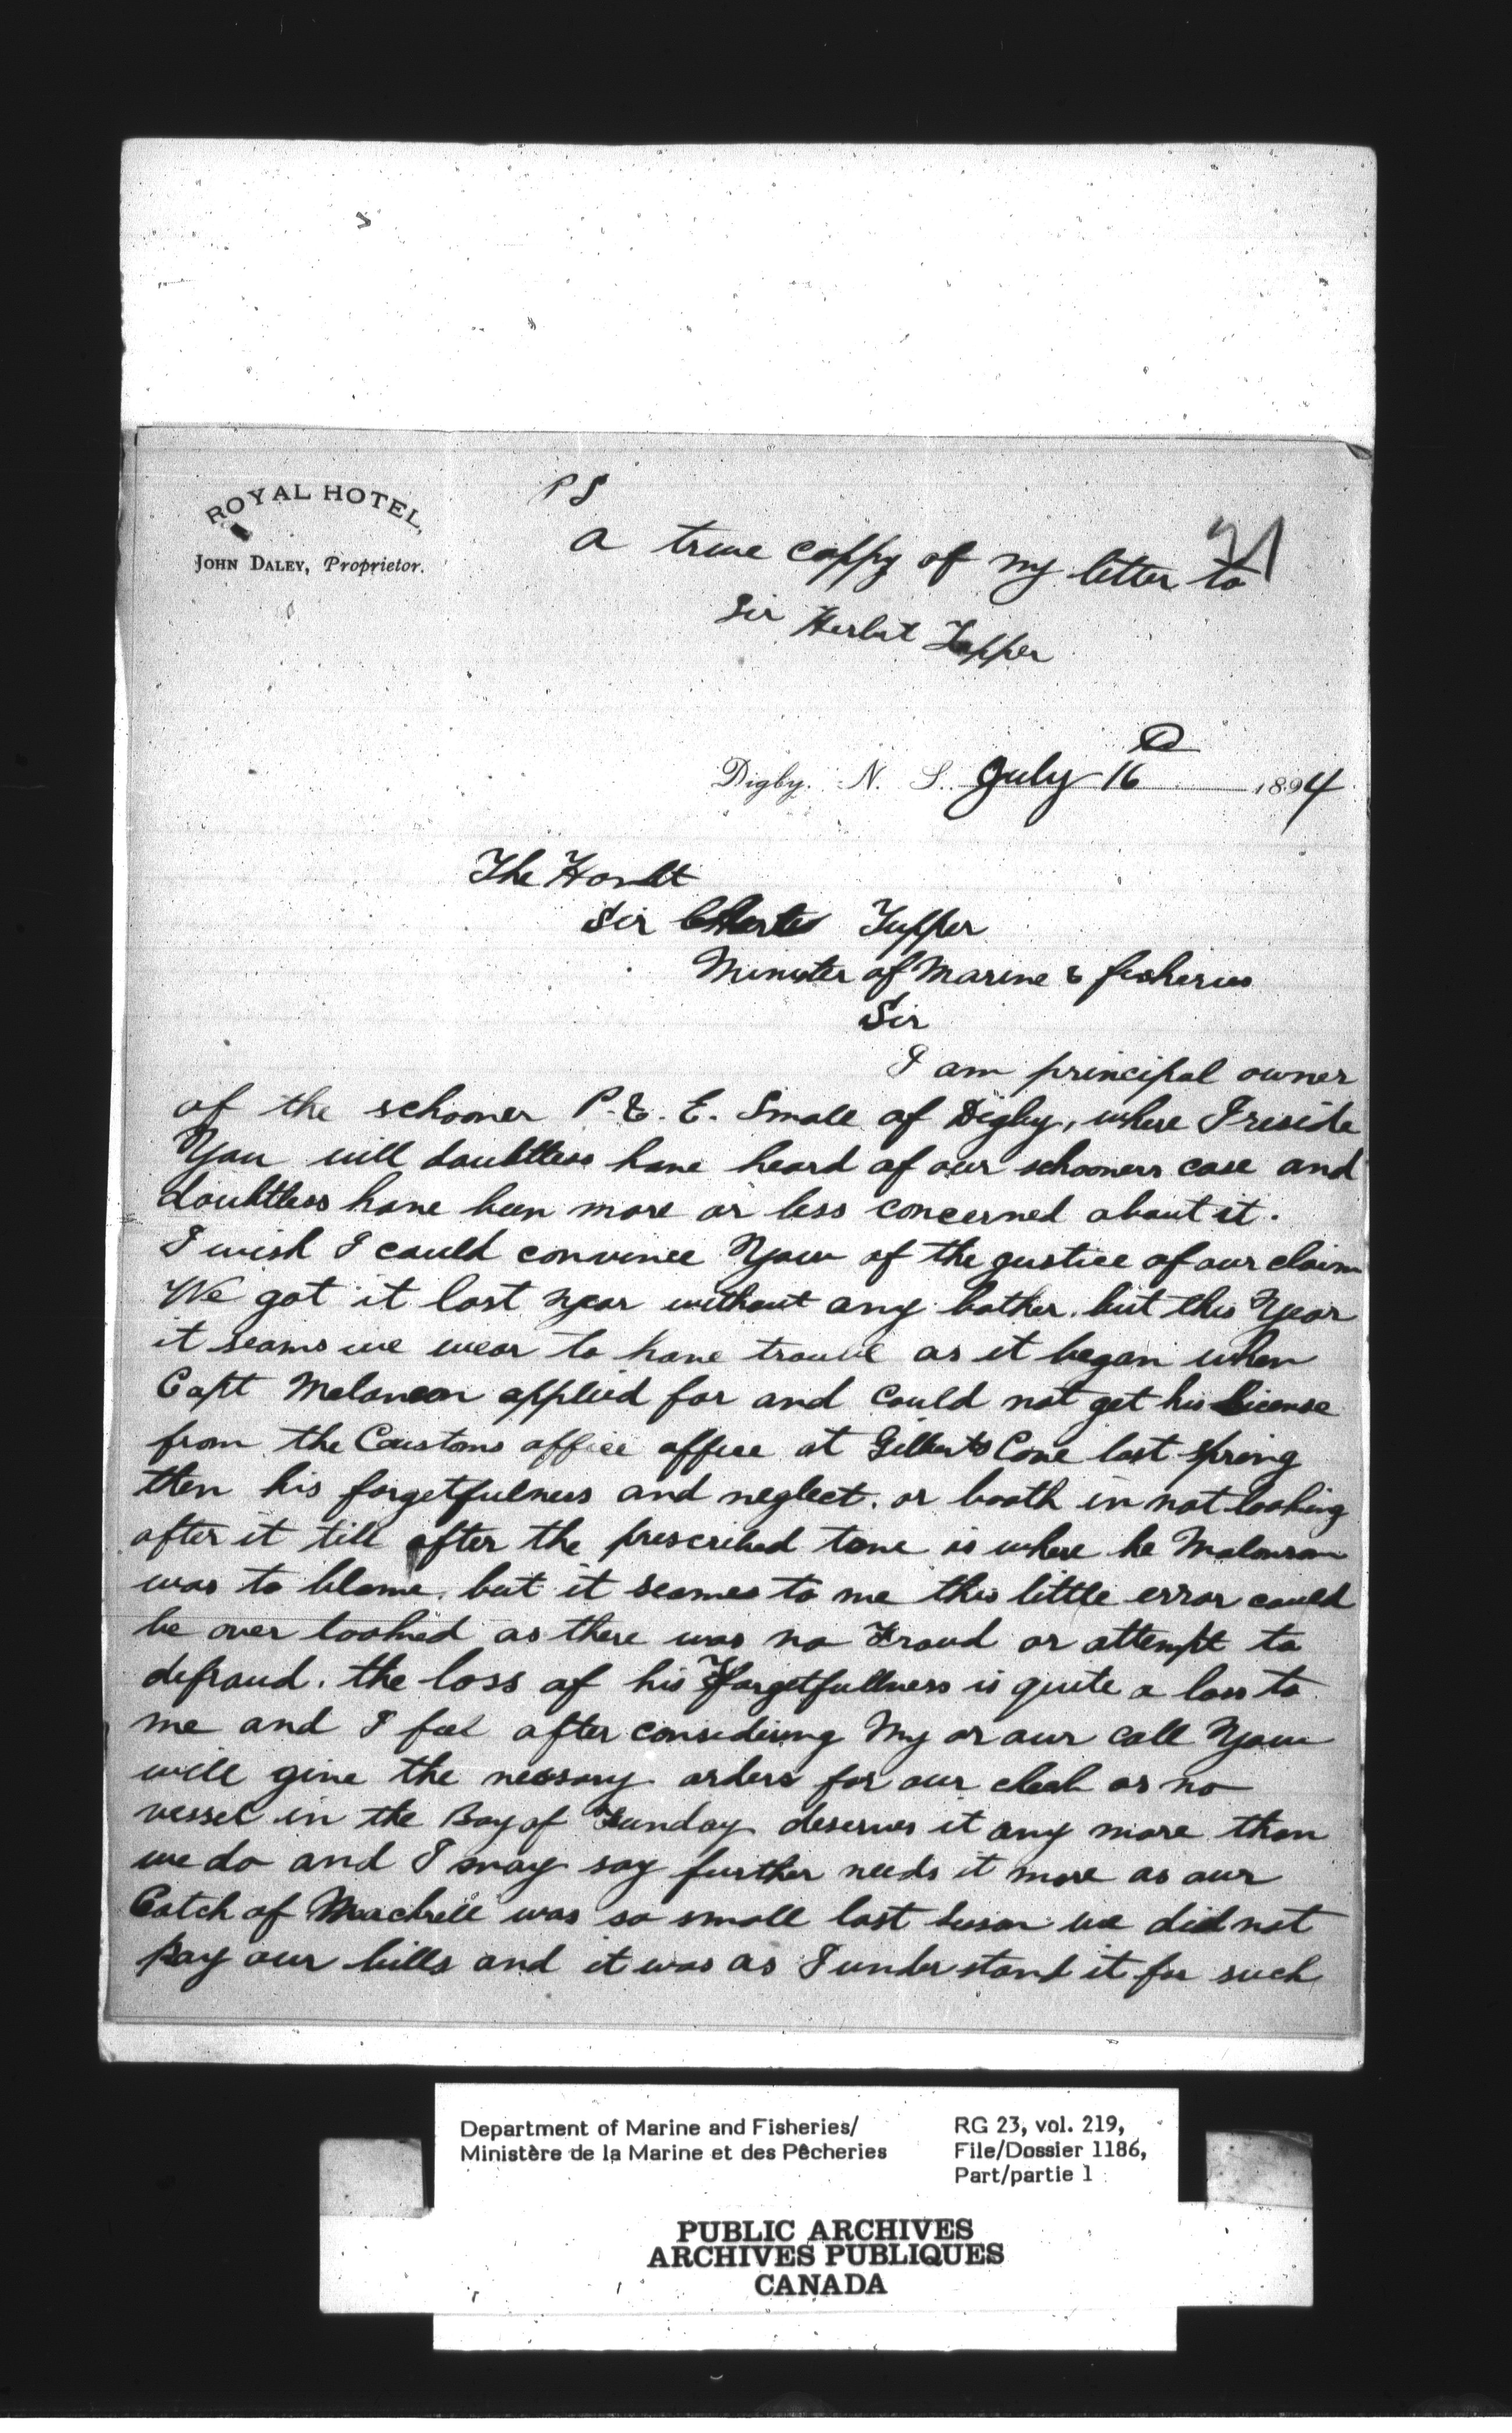 ROYAL HOTEL,
JOHN DALEY, Proprietor.
P S
a true coppy of my letter to
Sir Herbut Tupper
Digby. N. S. July 16 1894
The Honlt
Sir Tupper
Minister of Marine & fisheries
Sir
I am principal owner
of the schooner P. E. E. Small of Digby, where I reside
You will doubtless have heard of our schooners case and
doubtless have been more or less concerned about it.
I wish I could convince You of the justice of our claim
We got it last year without any bother. but this Year
it seams we wear to have trouble as it began when
Capt Melanson applied for and could not get his License
from the Customs office office at Gilberts Cove last spring
then his forgetfulness and neglect. or booth in not looking
after it till after the prescribed time is where he Melanson
was to blame. but it seames to me this little error could
be over looked as there was no Fraud or attempt to
defraud. the loss of his Forgetfullness is quite a loss to
me and I feel after considering My or our call You
will give the nessary orders for our check as no
vessel in the Bay of Funday deserves it any more than
we do and I may say further needs it more as our
Catch of Mackrell was so small last season we did not
pay our bills and it was as I understand it for such
Department of Marine and Fisheries/
Ministère de la Marine et des Pêcheries
RG 23, vol. 219,
File/Dossier 1186,
Part/partie 1
PUBLIC ARCHIVES
ARCHIVES PUBLIQUES
CANADA